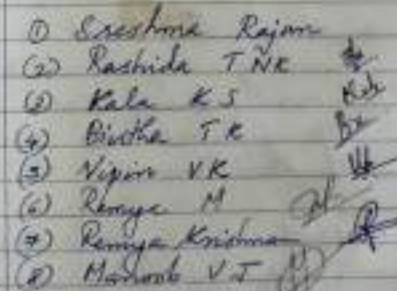 ① Sreshma Rajan
② Rashida T N K
③ Kala K S
④ T K
⑤ Vipin VK
⑥ Remya M
⑦ Remya Krishna
⑧ V J